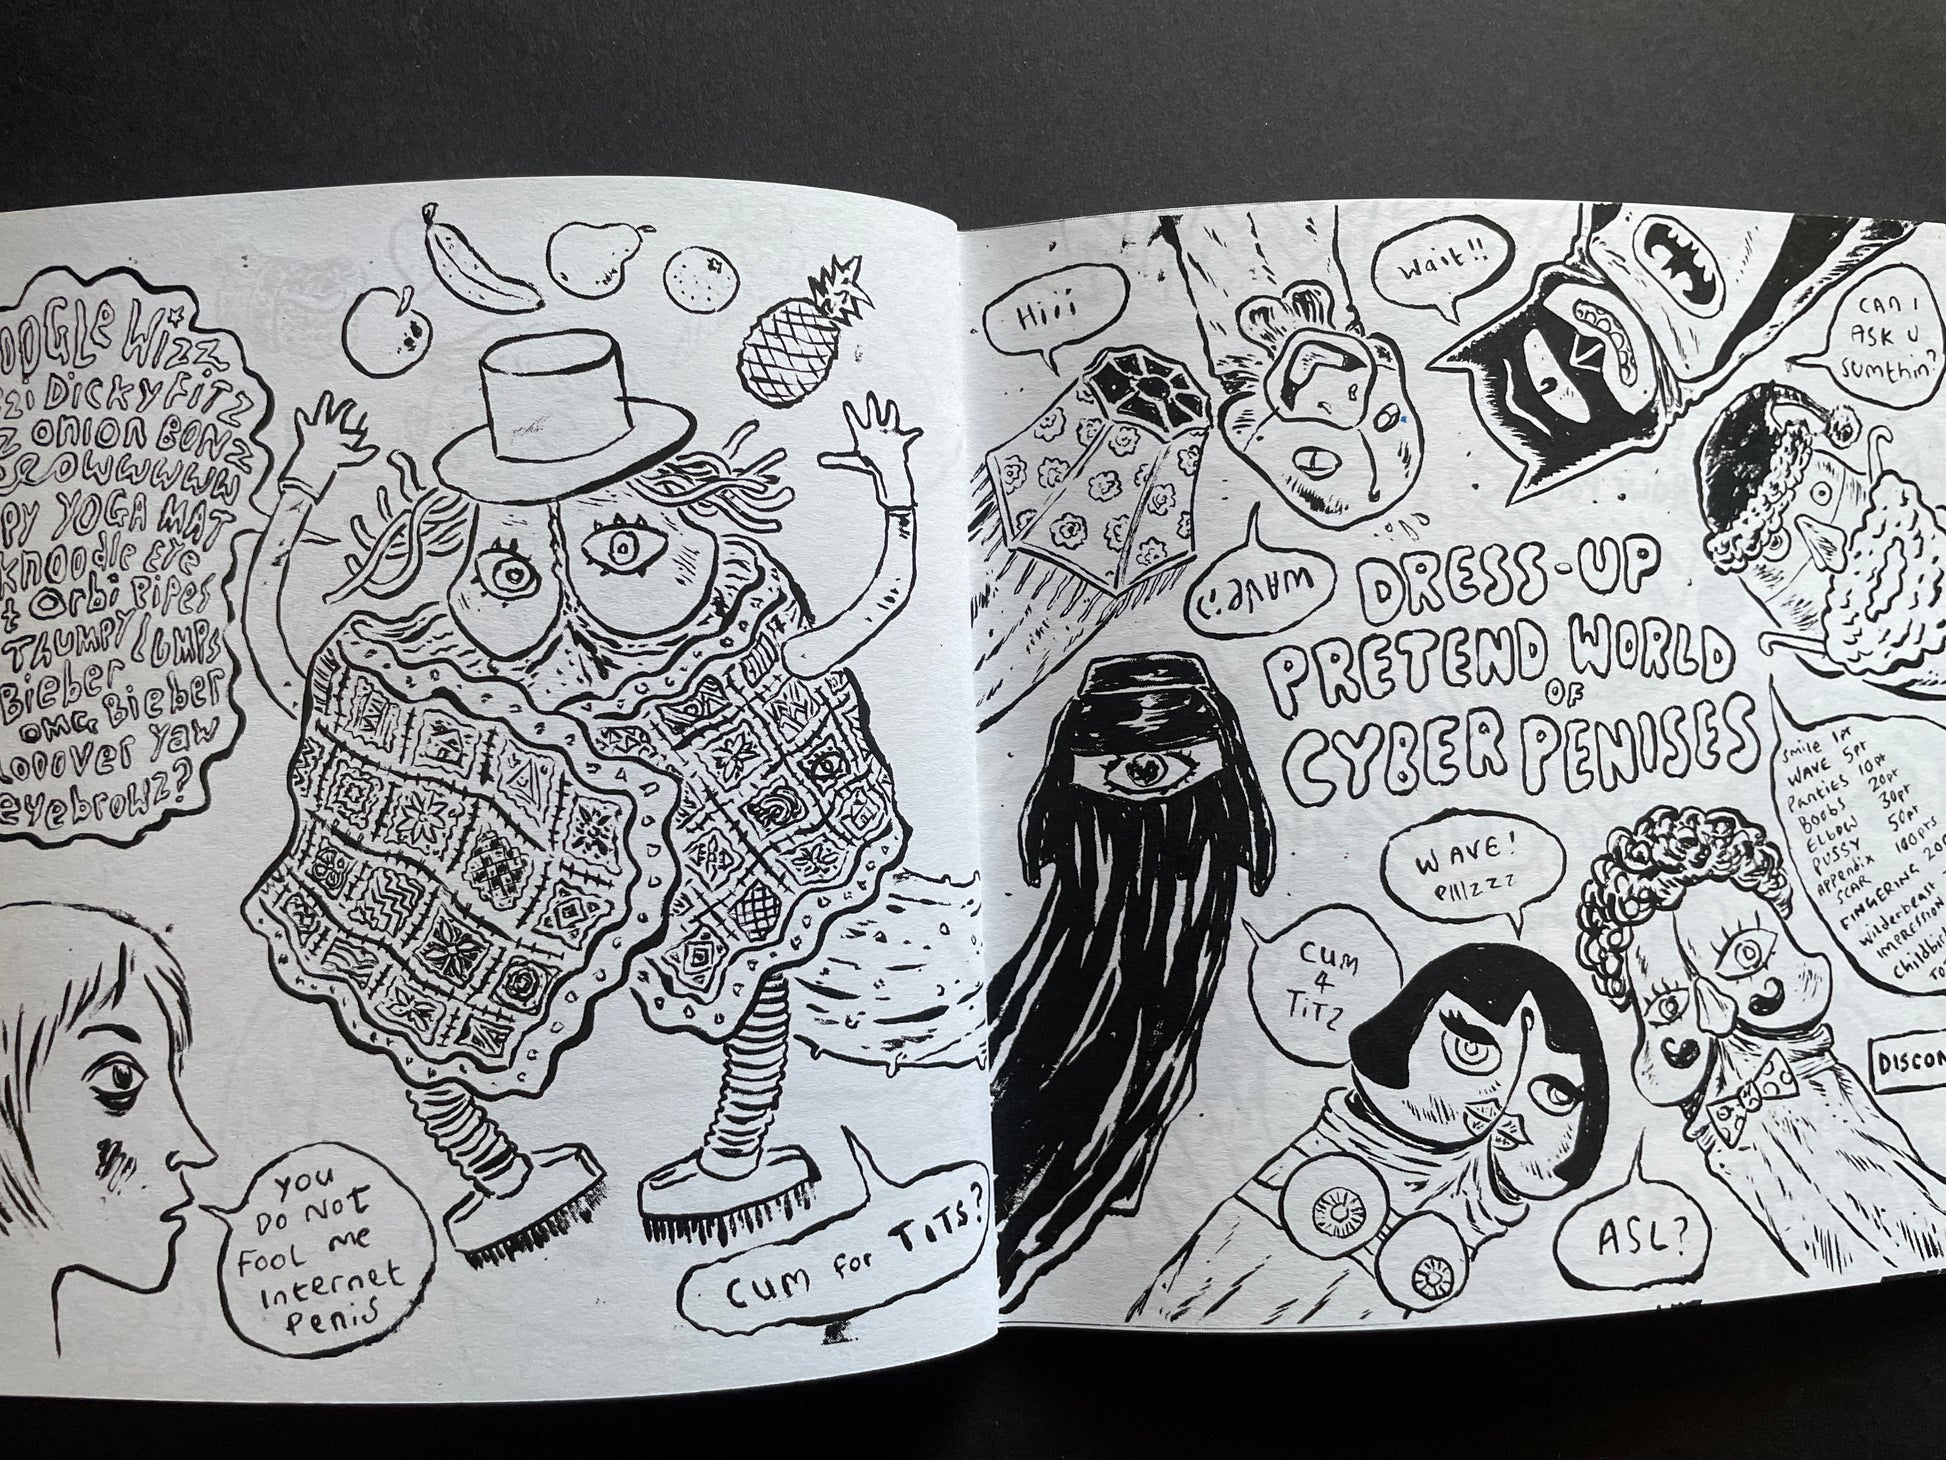 OOGLE WIZZ
zzi DICKYFITZ
Z ONION BONZ
EOWWWWW
PY YOGA MAT
KNOODLE EYE
t Orbi Pipes
THUMPY LUMPS
Bieber
OMG Bieber
LOOOVER YAW
eyebrowz?
YOU
DO NOT
FOOL me
internet
Penis
CUM for TITS?
Hiii
Wait!!
CAN I
ASK U
Sumthin?
WAVE?
DRESS-UP
PRETEND WORLD
OF
CYBER PENISES
Smile 1pt
WAVE 5pt
Panties 10pt
BOOBS 20pt
ELBOW 30pt
PUSSY 50pt
Appendix
SCAR 100pts
FINGERING 200
Wilderbeast
impression
Childbi
WAVE!
Plllzzz
CUM
4
TiTZ
DISCON
ASL?